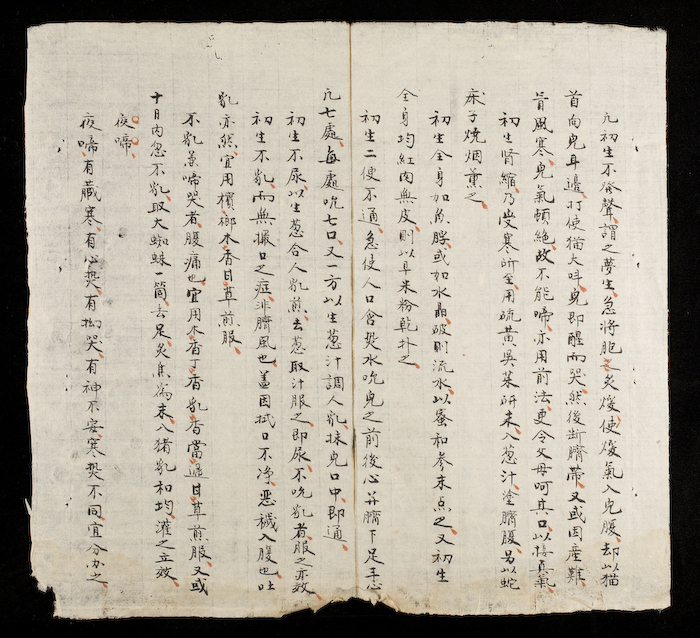 凡初生不發聲謂之夢生急將胞衣炙煖使煖氣入兒腹却以猫
首向兒耳邊打使猫大呌兒即醒而哭然後断臍帶又或因產難
冐風寒兒氣頓絶故不能啼亦用前法更令父母呵其口以接真氣
初生腎縮乃受寒所至用硫黄吳茱研末入葱汁塗臍腹另以蛇
床子燒烟薰之
初生全身如魚脬或如水晶破則流水以蜜和參末点之又初生
全身均紅肉無皮則以早米粉乾扑之
初生二便不通急使人口含熨水吮兒之前後心并臍下足手心
凢七處每處吮七口又一方以生葱汁調人乳抹兒口中即通
初生不尿以生葱合人乳煎去葱取汁服之即尿不吮乳者服之亦效
初生不乳而無撮口之症非臍風也盖因拭口不净惡穢入腹也吐
乳亦然宜用檳榔木香甘草煎服
不乳兼啼哭者腹痛也宜用木香丁香乳香當归甘草煎服又或
十日内忽不乳取大蜘蛛一箇去足炙焦為末入猪乳和均灌之立效
夜啼
夜啼有臟寒有心熨有拗哭有神不安寒熨不同宜分办之